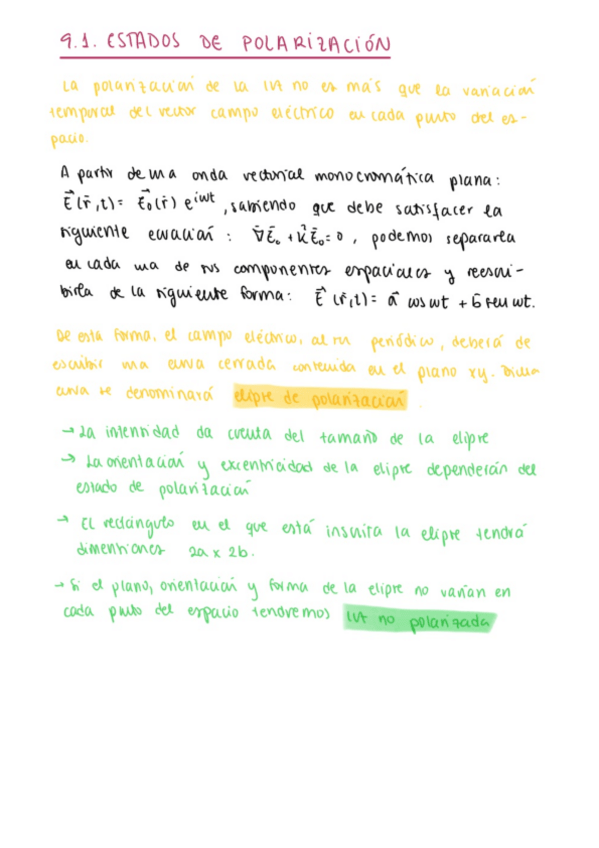 9.1. ESTADOS DE POLARIZACIÓN
La polarización de la luz no es más que la variación
temporal del vector campo eléctrico en cada punto del es-
pacio.
A partir de una onda vectorial monocromática plana:
E⃗(r̄,t) = E⃗₀(r̄) e^{iωt}, sabiendo que debe satisfacer la
siguiente ecuación: ∇̄Ē₀ + k²Ē₀ = 0, podemos separarla
en cada una de sus componentes espaciales y reescri-
birla de la siguiente forma: E⃗(r̄,t) = a⃗ cos ωt + b̄ sen ωt.
De esta forma, el campo eléctrico, al ser periódico, deberá de
escribir una curva cerrada contenida en el plano xy. Dicha
curva se denominará elipse de polarización.
→ La intensidad da cuenta del tamaño de la elipse
→ La orientación y excentricidad de la elipse dependerán del
estado de polarización
→ El rectángulo en el que está inscrita la elipse tendrá
dimensiones 2a x 2b.
→ Si el plano, orientación y forma de la elipse no varían en
cada punto del espacio tendremos luz no polarizada